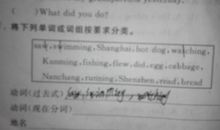 ( )What did you do?
将下列单词或词组按要求分类。
saw,swimming,Shanghai,hot dog,watching,
Kunming,fishing,flew,did,egg,cabbage,
Nanchang,running,Shenzhen,read,bread
动词(过去式)
动词(现在分词)
地名